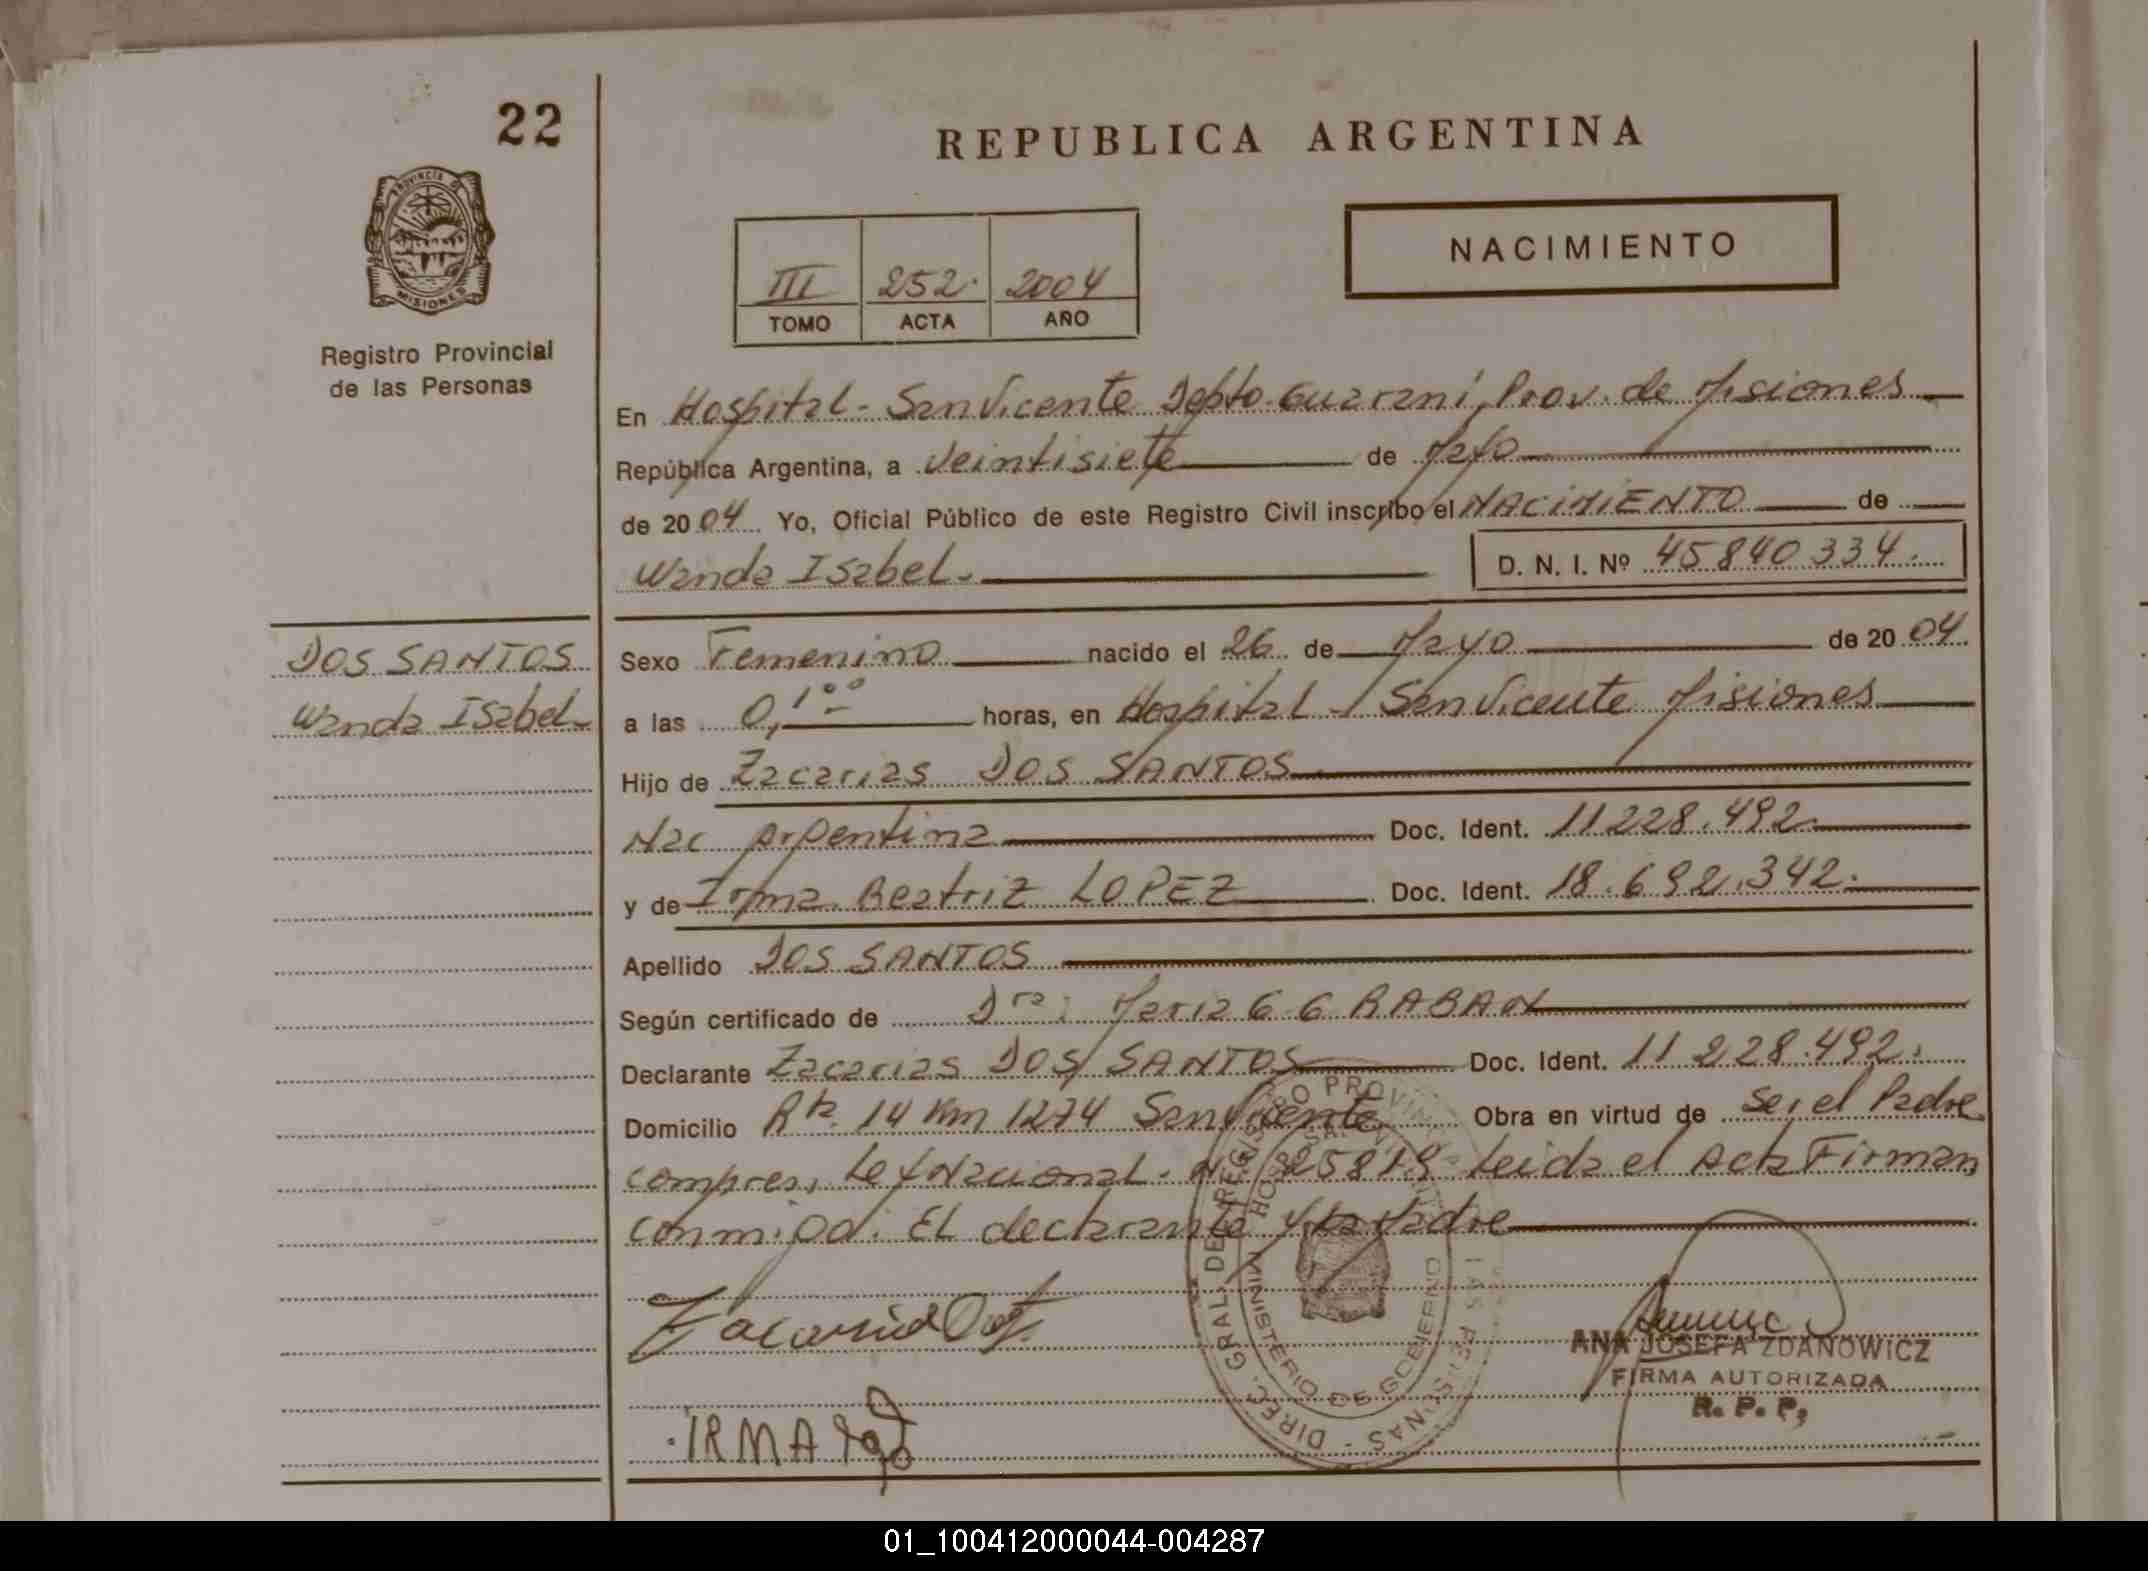 22
REPUBLICA ARGENTINA
PROVINCIA DE
MISIONES
Registro Provincial
de las Personas
NACIMIENTO
III 252. 2004
TOMO ACTA AÑO
En Hospital - San Vicente Depto. Guarani, Prov. de Misiones
República Argentina, a veintisiete de Mayo
de 2004 Yo, Oficial Público de este Registro Civil inscribo el NACIMIENTO de
Wanda Isabel. D. N. I. Nº 45840334.
DOS SANTOS
Wanda Isabel.
Sexo Femenino nacido el 26 de Mayo de 2004
a las 0,1⁰⁰ horas, en Hospital - San Vicente Misiones
Hijo de Zacarias DOS SANTOS
Nac Argentina Doc. Ident. 11228.492.
y de Irma Beatriz LOPEZ Doc. Ident. 18.692.342.
Apellido DOS SANTOS
Según certificado de Dra: Maria G G RABAN
Declarante Zacarias DOS SANTOS Doc. Ident. 11228.492.
Domicilio Rta. 14 Km 1274 San Vicente Obra en virtud de ser el Padre
compres, Ley Nacional - Nº 25819 Leida el Acta Firman
conmigo. El declarante y la Madre
Zacaria
IRMA
DIREC. GRAL. DE REGISTRO PROVINCIAL DE LAS PERSONAS
HOSP. SAN VICENTE
MINISTERIO DE GOBIERNO
ANA JOSEFA ZDANOWICZ
FIRMA AUTORIZADA
R. P. P,
01_100412000044-004287